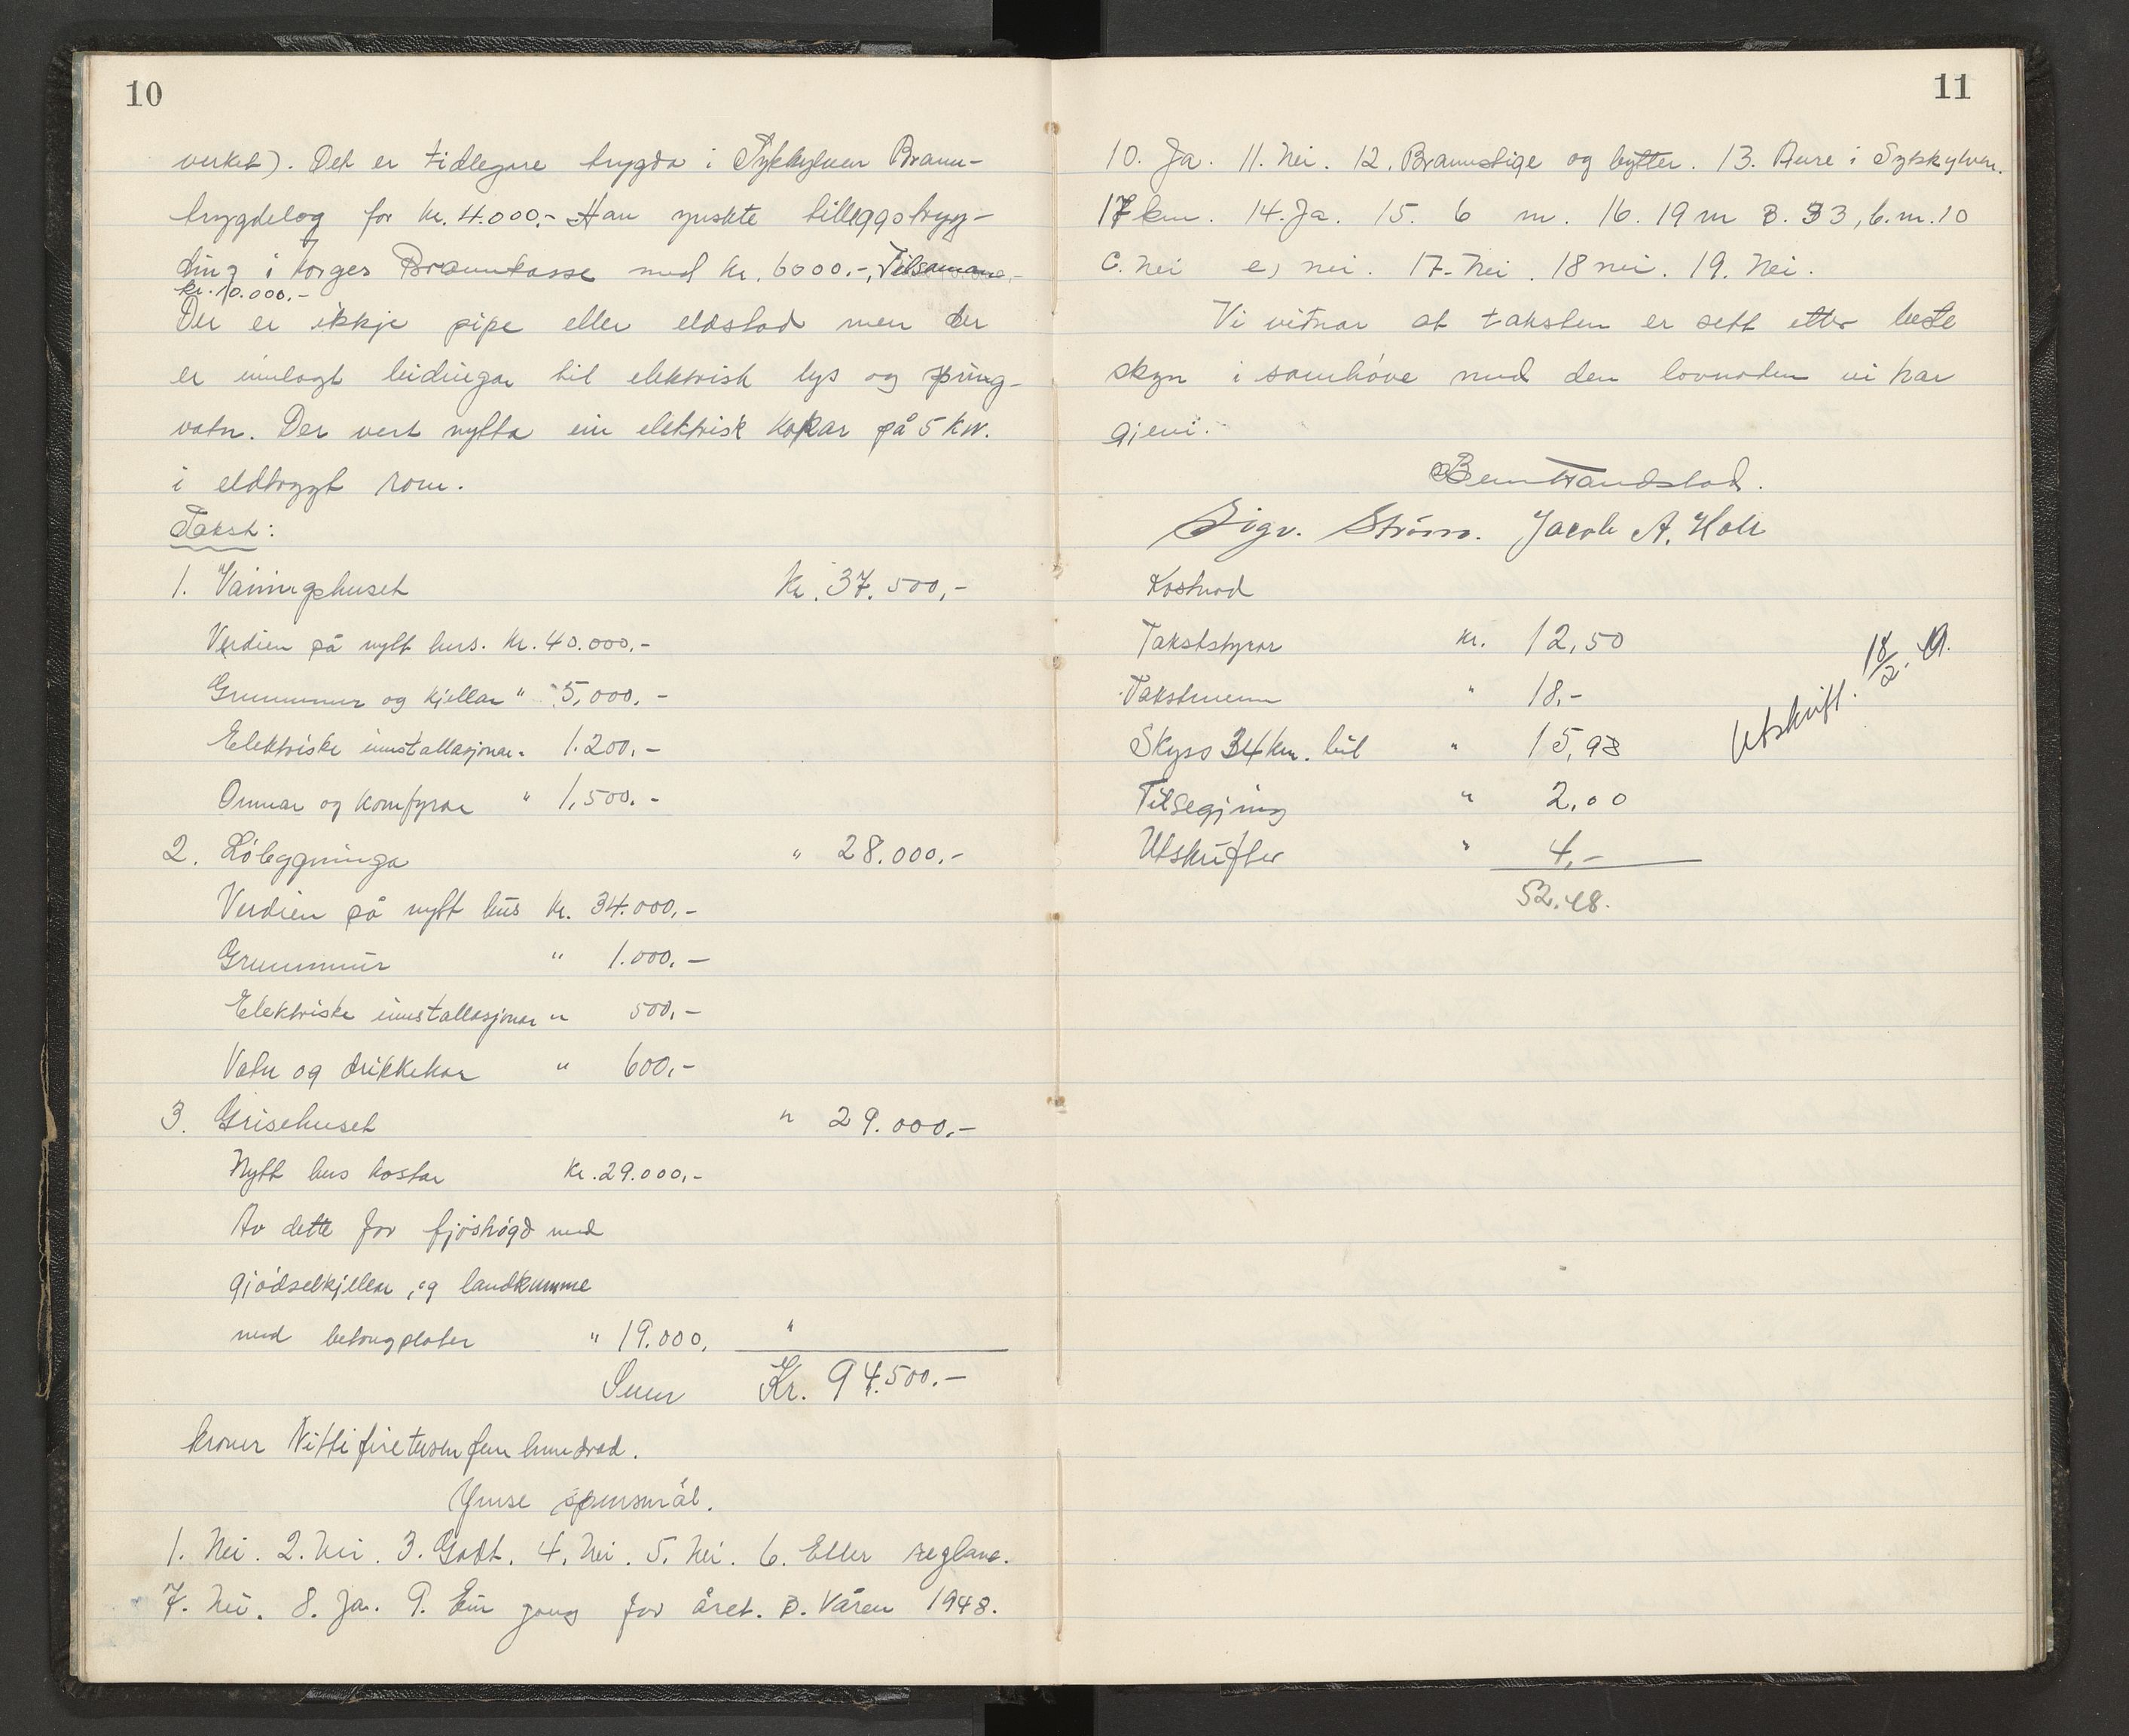 10
verket). Det er tidlegare trygda i Sykkylven Brann-
trygdelag for kr. 4.000.- Han ynskte tilleggstryg-
ding i Norges Brannkasse med kr. 6000.-, Tilsamans
kr. 10.000.-
Der er ikkje pipe eller eldstad men der
er innlagt leidingar til elektrisk lys og spring-
vatn. Der vert nytta ein elektrisk kokar på 5 kw.
i eldtrygt rom.
Takst:
1. Våningshuset kr. 37.500,-
Verdien på nytt hus. kr. 40.000.-
Grunnmur og kjellar " 5,000.-
Elektriske innstallasjonar " 1.200.-
Omnar og komfyrar " 1,500.-
2. Løbygginga " 28.000.-
Verdien på nytt hus kr. 34.000,-
Grunnmur " 1.000.-
Elektriske innstallasjonar " 500,-
Vatn og drikkekar " 600,-
3. Grisehuset " 29.000.-
Nytt hus kostar kr. 29.000,-
Av dette for fjøshøgd med
gjødselkjellar og landkumme
med betongplater " 19.000. "
Sum Kr. 94.500.-
kroner Nittifiretusenfemhundrad.
Ymse spursmål.
1. Nei. 2. Nei. 3. Godt. 4. Nei. 5. Nei. 6. Etter reglane.
7. Nei. 8. Ja. 9. Ein gong for året. B. Våren 1948.
11
10. Ja. 11. Nei. 12. Brannstige og bytter. 13. Aure i Sykkylven.
17 km. 14. Ja. 15. 6 m. 16. 19 m B. 33, 6. m. 10
C. Nei e) nei. 17. Nei. 18 nei. 19. Nei.
Vi vitnar at taksten er sett etter beste
skyn i samhøve med den lovnaden vi har
gjevi.
Bernt Tandstad.
Sigv. Strøm. Jacob A. Hole
Kostnad
Takststyrar kr. 12,50
Takstmenn " 18,-
Skyss 34 km. bil " 15,98
Tilsegjing " 2,00
Utskrifter " 4,-
52.48.
Utskrift. 18/2. 49.